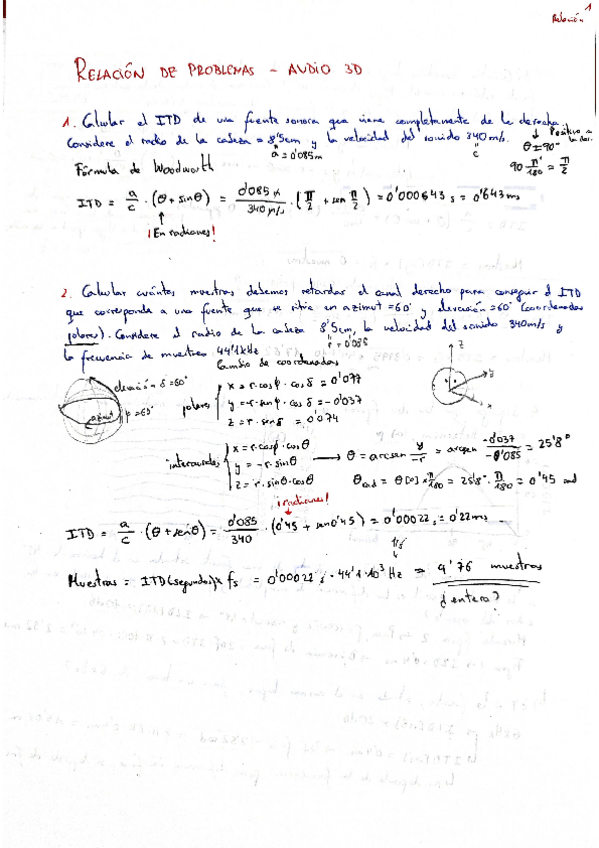 1
Relación
RELACIÓN DE PROBLEMAS - AUDIO 3D
1. Calcular el ITD de una fuente sonora que viene completamente de la derecha.
Considere el radio de la cabeza = 8'5cm y la velocidad del sonido 340 m/s.
a = 0'085m
c
Positivo a la der.
θ = 90°
90 π/180 = π/2
Fórmula de Woodworth
ITD = a/c · (θ + sinθ) = 0'085 m / 340 m/s · (π/2 + sen π/2) = 0'000643 s = 0'643 ms
¡En radianes!
2. Calcular cuántas muestras debemos retardar el canal derecho para conseguir el ITD
que corresponde a una fuente que se sitúa en azimut = 60° y elevación = 60° (coordenadas
polares). Considere el radio de la cabeza 8'5cm, la velocidad del sonido 340m/s y
r = 0'085
la frecuencia de muestreo 44'1 kHz
Cambio de coordenadas
elevación δ = 60°
azimut φ = 60°
polares
x = r·cosφ·cosδ = 0'077
y = r·senφ·cosδ = -0'037
z = r·senδ = 0'074
z
y
x
interaurales
x = r·cosφ·cosθ
y = -r·sinθ
z = r·sinφ·cosθ
θ = arcsen y/-r = arcsen -0'037/-0'085 = 25'8°
θrad = θ[°] × π/180 = 25'8° · π/180 = 0'45 rad
¡radianes!
ITD = a/c · (θ + senθ) = 0'085/340 · (0'45 + sen0'45) = 0'00022 s = 0'22 ms
1/s
Muestras = ITD(segundos) × fs = 0'00022 s · 44'1·10³ Hz = 9'76 muestras
¿entero?